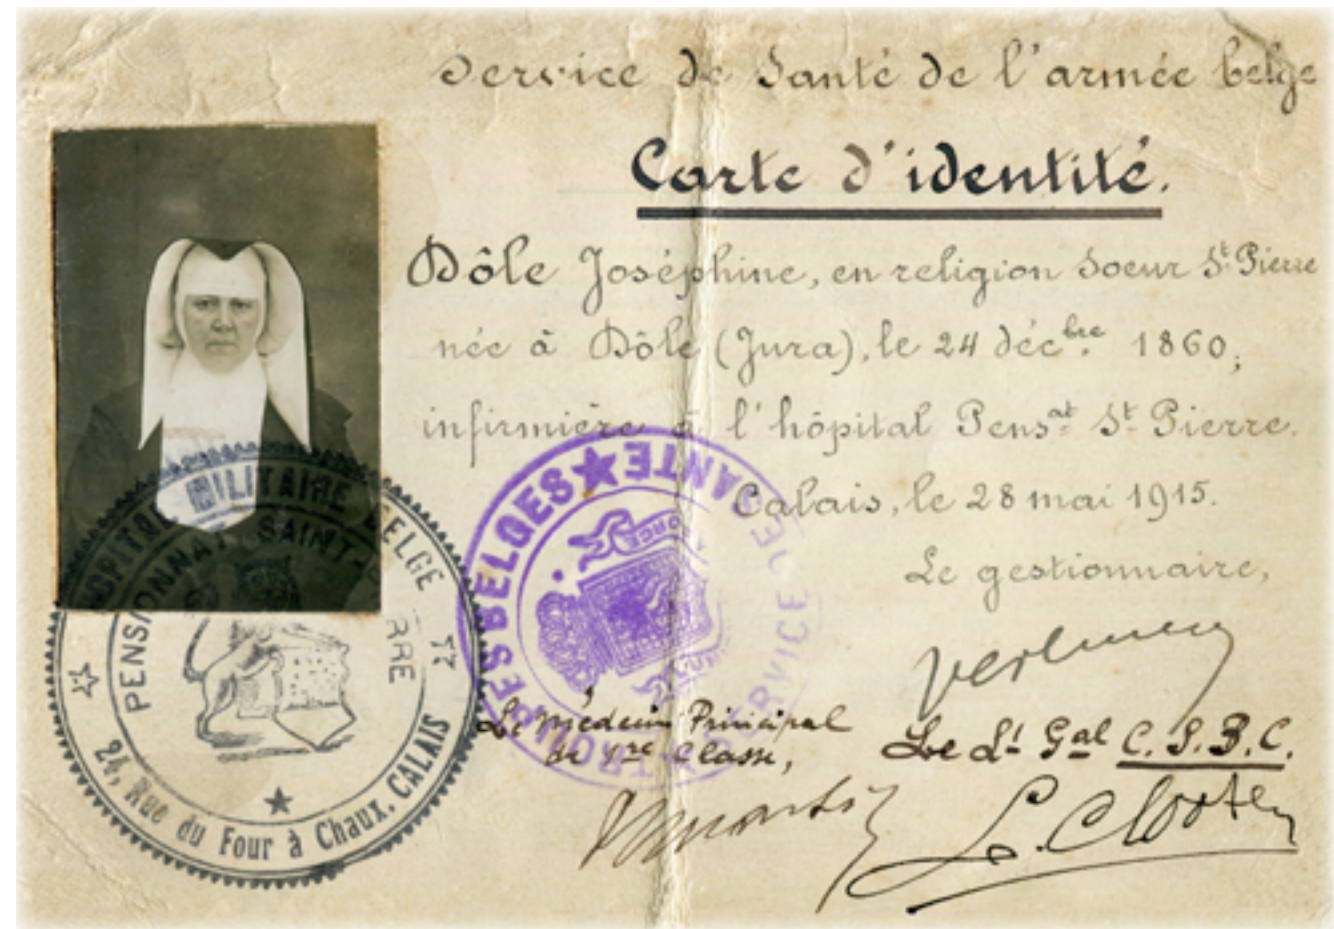 Service de Santé de l'armée belge
Carte d'identité.
Dôle Joséphine, en religion Soeur St. Pierre
née à Dôle (Jura), le 24 décbre. 1860,
infirmière à l'hôpital Pensat. St. Pierre.
Calais, le 28 mai 1915.
Le gestionnaire,
Le Médecin Principal
de 1re Classe,
Le Lt Gal C. S. B. C.
L. Clooten
HOPITAL MILITAIRE BELGE
PENSIONNAT SAINT-PIERRE
24, Rue du Four à Chaux. CALAIS
TROUPES BELGES
SERVICE DE SANTÉ
FORCE